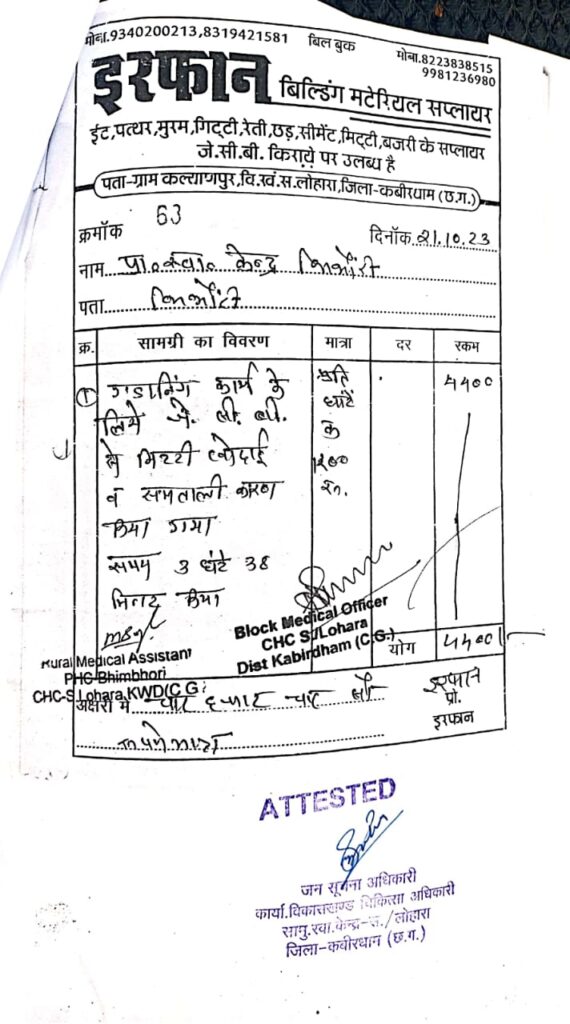 मोबा.9340200213,8319421581 बिल बुक मोबा.8223838515
9981236980
इरफान बिल्डिंग मटेरियल सप्लायर
ईंट,पत्थर,मुरम,गिट्टी,रेती,छड़,सीमेंट,मिट्टी,बजरी के सप्लायर
जे.सी.बी. किराये पर उलब्ध है
पता-ग्राम कल्याणपुर,वि.खं.स.लोहारा,जिला-कबीरधाम (छ.ग.)
क्रमाँक 63 दिनाँक 21.10.23
नाम प्रा.स्वा. केन्द्र भिंभौरी
पता भिंभौरी
क्र. सामग्री का विवरण मात्रा दर रकम
1 गार्डनिंग कार्य के प्रति 4400
लिये जे. सी. बी. घंटे
से मिटटी खोदाई क
व समताली कारण 1200 रु.
किया गया
समय 3 घंटे 38
मिनट किया
Block Medical Officer
CHC S/Lohara
Dist Kabirdham (C.G.)
Rural Medical Assistant
PHC-Bhimbhori
CHC-S.Lohara,KWD(C.G.
योग 4400/-
अक्षरी में चार हजार चार सौ
रूपये मात्र
इरफान
प्रो.
इरफान
ATTESTED
जन सूचना अधिकारी
कार्या.विकासखण्ड चिकित्सा अधिकारी
सामु.स्वा.केन्द्र-स./लोहारा
जिला-कबीरधाम (छ.ग.)